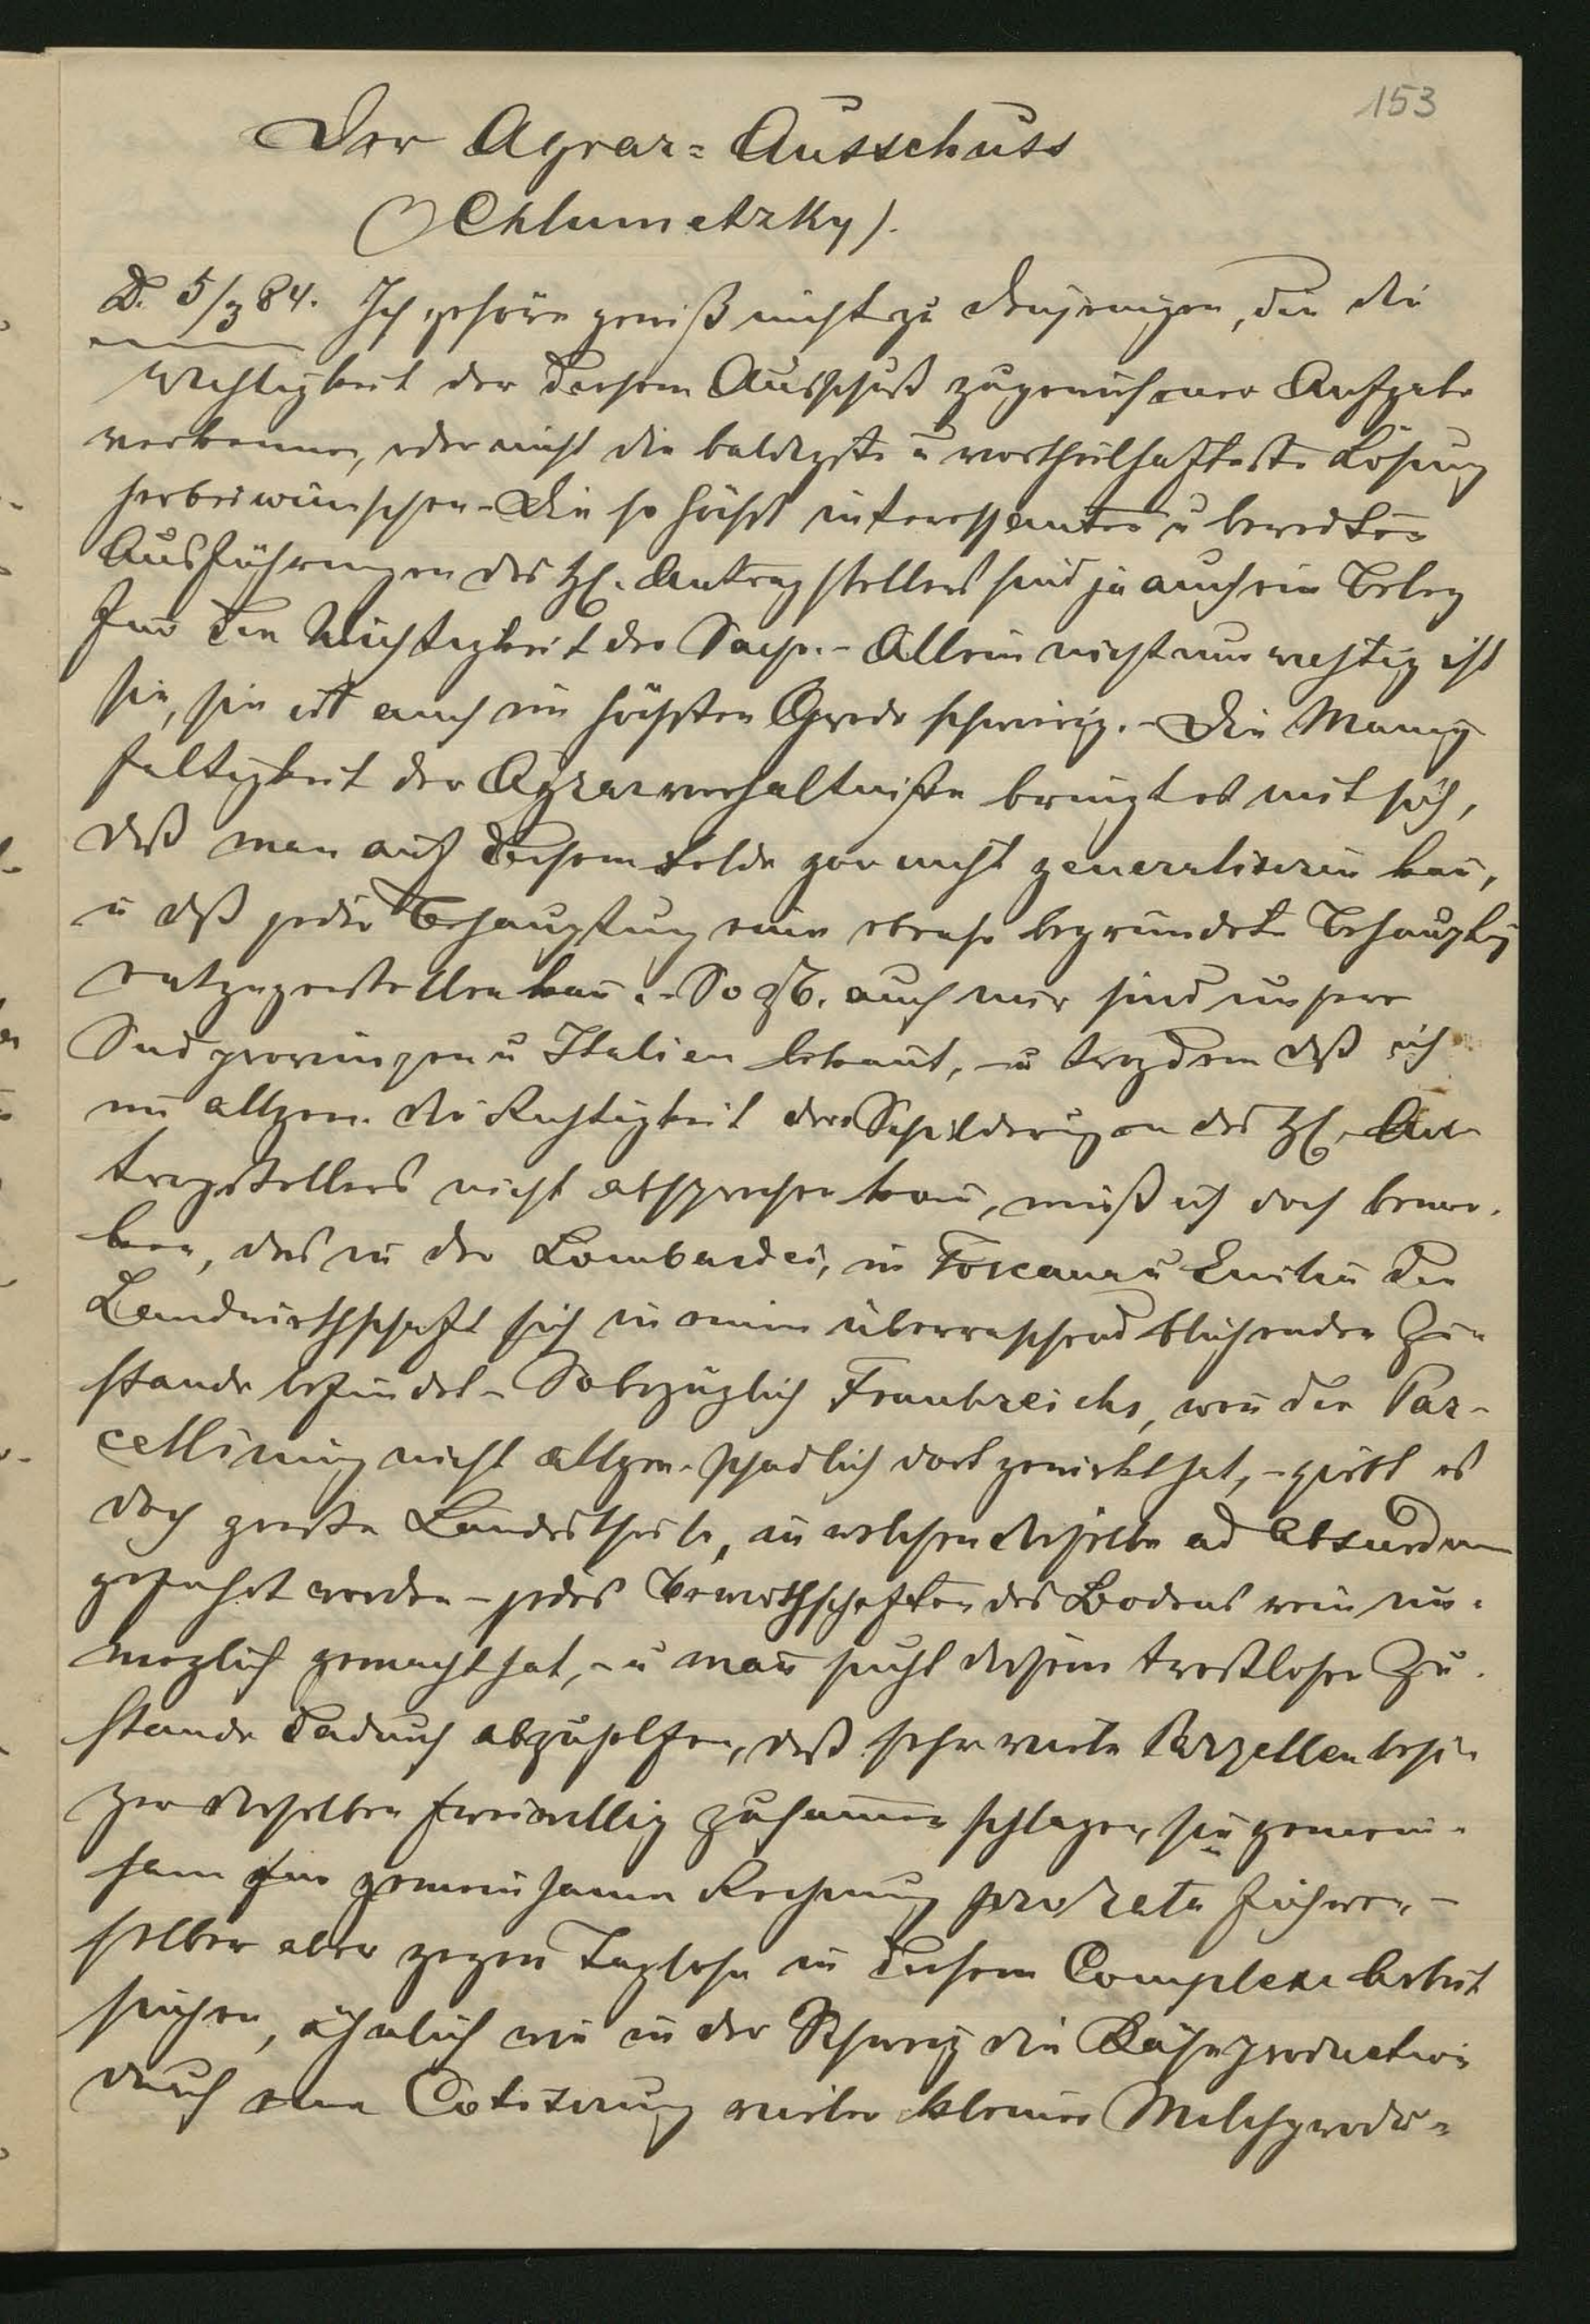 153
Der Agrar=Ausschuss
(Chlumetzky).
D. 5/3 84. Ich gehöre gewiß nicht zu denjenigen, die die
Wichtigkeit der diesem Ausschuß zugewiesenen Aufgabe
verkennen, oder nicht die baldigste u vortheilhafteste Lösung
herbeiwünschen. - Die so höchst interessanten u beredten
Ausführungen des H. Antragstellers sind ja auch ein Beleg
für die Wichtigkeit der Sache. - Allein nicht nur wichtig ist
sie, sie ist auch im höchsten Grade schwierig. - Die Manig
faltigkeit der Agrarverhältniße bringt es mit sich,
daß man auf diesem Felde gar nicht generalisiren kañ,
u daß jede Behauptung eine ebenso begründete Behauptg
entgegenstellen kañ. - So zB. auch mir sind unsere
Südprovinzen u Italien bekannt, - u trozdem daß ich
im allgem. die Richtigkeit der Schilderungen des H. An
tragstellers nicht absprechen kañ, muß ich doch bemer-
ken, das in der Lombardei, in Toscana u Emilia die
Landwirthschaft sich in einem überraschend blühenden Zu-
stande befindet - So bezüglich Frankreichs, weñ die Par-
cellirung nicht allgem. schädlich dort gewirkt hat, - gibt es
doch große Landestheile, in welchen dieselbe ad absurdum
geführt worden - jedes Bewirthschaften des Bodens rein un-
möglich gemacht hat, - u mañ sucht diesem trostlosen Zu-
stande dadurch abzuhelfen, daß sehr viele Parzellenbesi-
zer dieselben freiwillig zusam̄enschlagen, sie gemein-
sam für gemeinsame Rechnung pro rata führen, -
selber aber gegen Taglohn in diesem Complexe Arbeit
suchen, ähnlich wie in der Schweiz die Käseproduction
durch eine Cotisirung vieler kleiner Milchprodu-